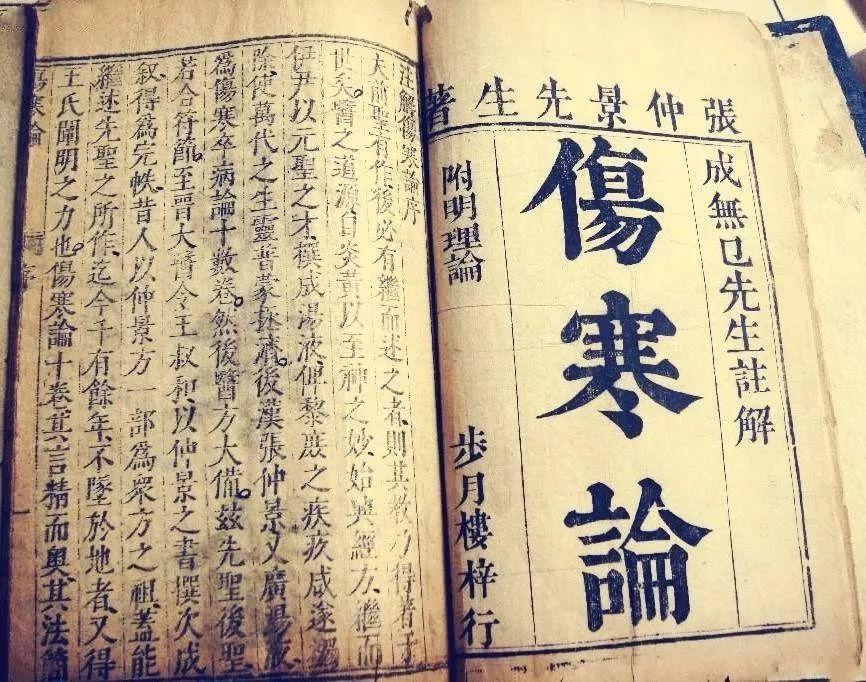 張仲景先生著
成無巳先生註解
傷寒論
附明理論
步月樓梓行
注解傷寒論序
夫前聖有作後必有繼而述之者則其教乃得著于
世矣醫之道源自炎黃以至神之妙始興經方繼而
伊尹以元聖之才撰成湯液俾黎庶之疾疢咸遂蠲
除使萬代之生靈普蒙拯濟後漢張仲景又廣湯液
為傷寒卒病論十數卷然後醫方大備茲先聖後聖
若合符節至晉大醫令王叔和以仲景之書撰次成
敘得為完帙昔人以仲景方一部為眾方之祖蓋能
繼述先聖之所作迄今千有餘年不墜於地者又得
王氏闡明之力也傷寒論十卷其言精而奧其法簡
傷寒論
序